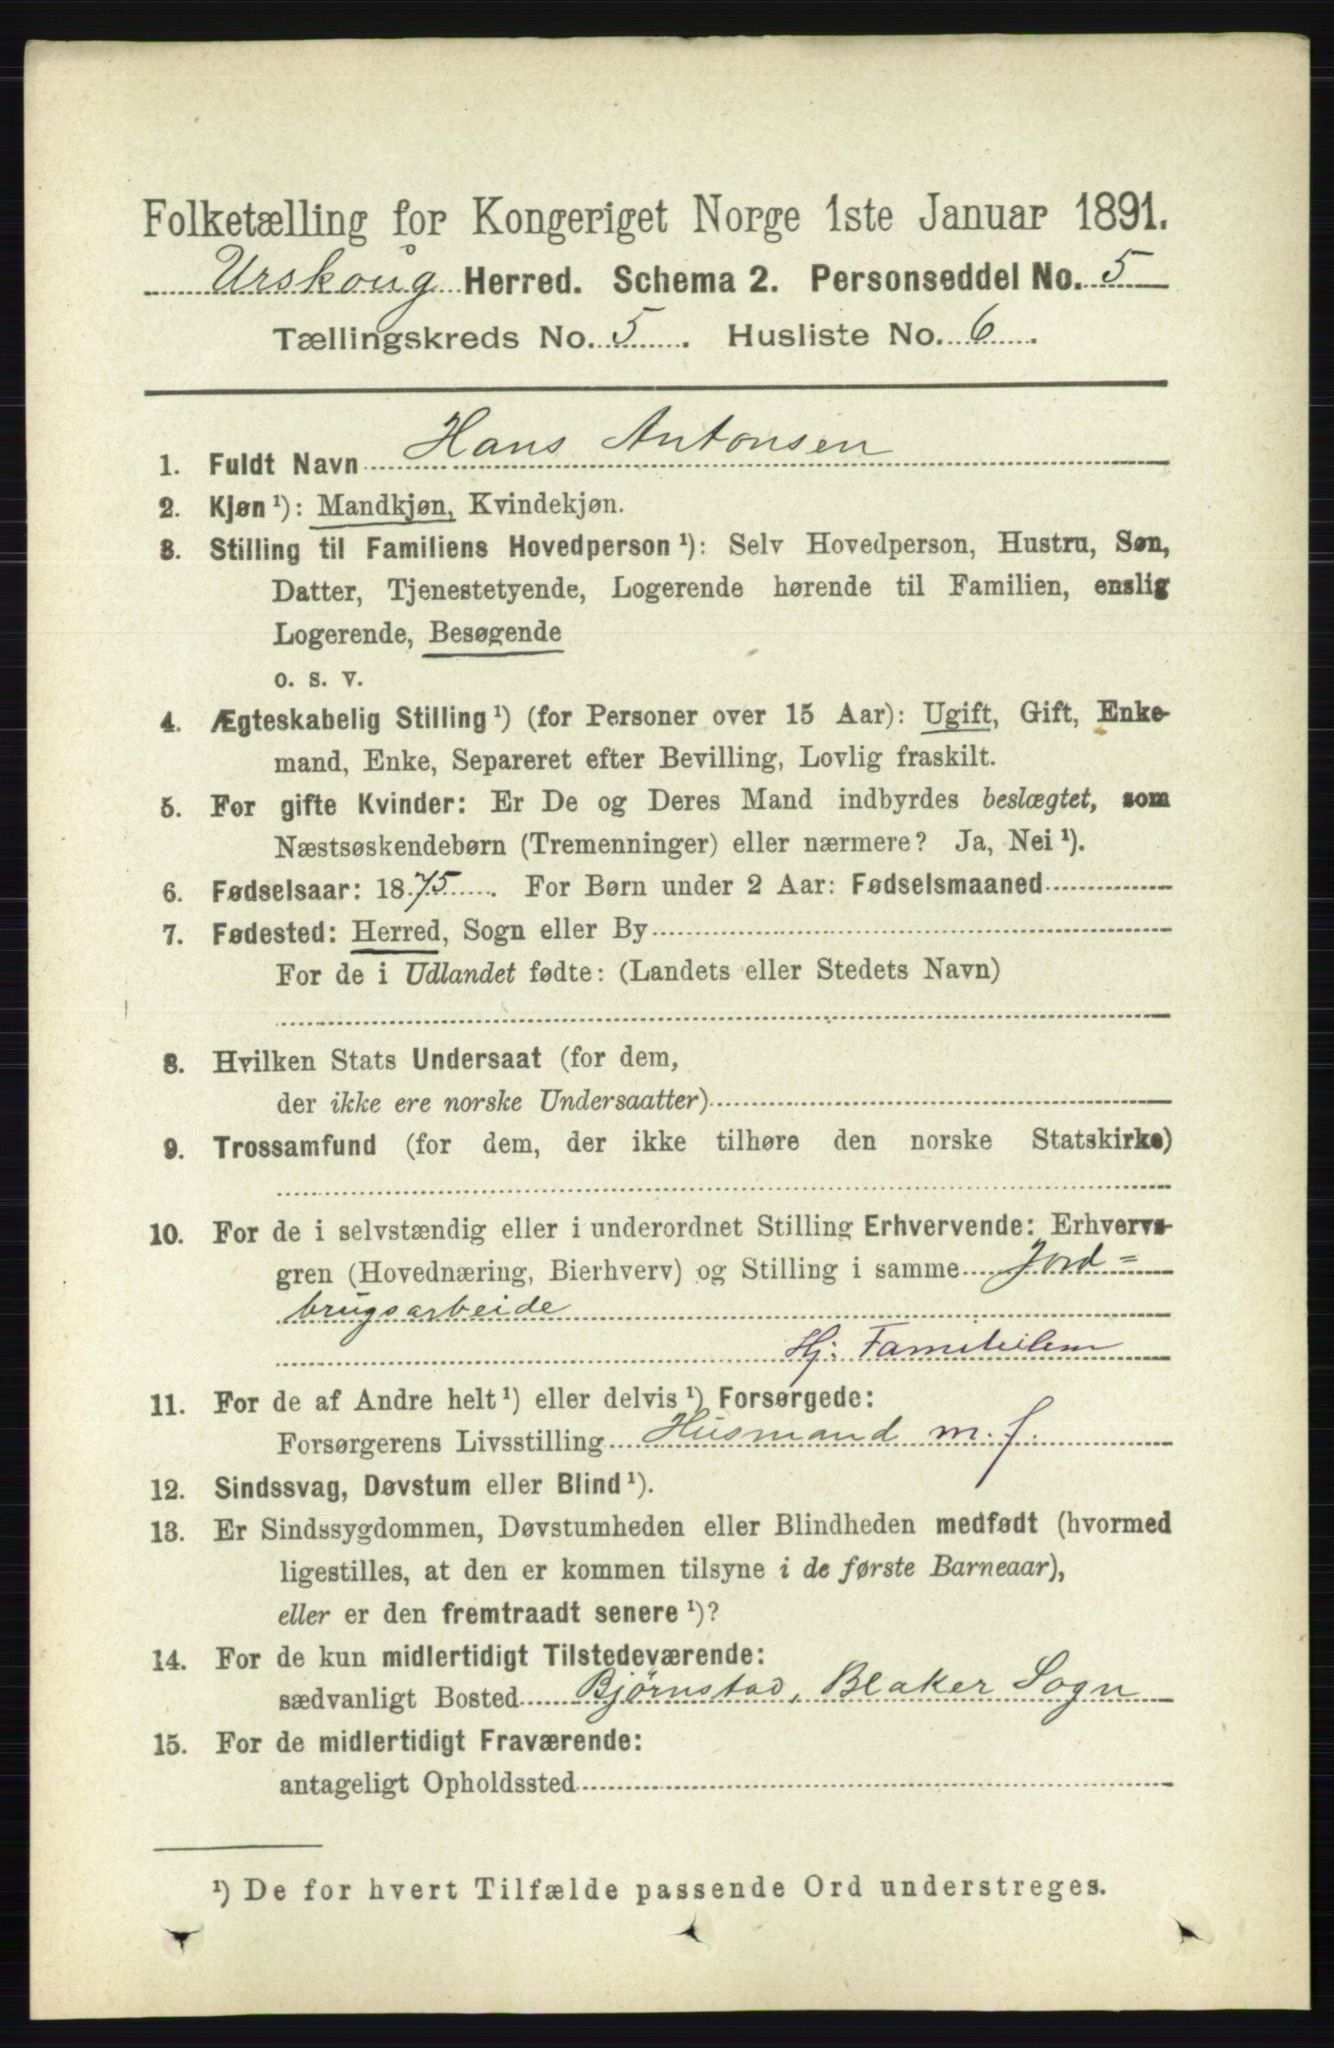 Folketælling for Kongeriget Norge 1ste Januar 1891.
Urskoug Herred. Schema 2. Personseddel No. 5
Tællingskreds No. 5. Husliste No. 6.
1. Fuldt Navn Hans Antonsen
2. Kjøn¹): Mandkjøn, Kvindekjøn.
3. Stilling til Familiens Hovedperson¹): Selv Hovedperson, Hustru, Søn,
Datter, Tjenestetyende, Logerende hørende til Familien, enslig
Logerende, Besøgende
o. s. v.
4. Ægteskabelig Stilling¹) (for Personer over 15 Aar): Ugift, Gift, Enke-
mand, Enke, Separeret efter Bevilling, Lovlig fraskilt.
5. For gifte Kvinder: Er De og Deres Mand indbyrdes beslægtet, som
Næstsøskendebørn (Tremenninger) eller nærmere? Ja, Nei¹).
6. Fødselsaar: 1875. For Børn under 2 Aar: Fødselsmaaned
7. Fødested: Herred, Sogn eller By
For de i Udlandet fødte: (Landets eller Stedets Navn)
8. Hvilken Stats Undersaat (for dem,
der ikke ere norske Undersaatter)
9. Trossamfund (for dem, der ikke tilhøre den norske Statskirke)
10. For de i selvstændig eller i underordnet Stilling Erhvervende: Erhvervs-
gren (Hovednæring, Bierhverv) og Stilling i samme Jord=
brugsarbeide
Hj:
11. For de af Andre helt¹) eller delvis¹) Forsørgede:
Forsørgerens Livsstilling Husmand m. j.
12. Sindssvag, Døvstum eller Blind¹).
13. Er Sindssygdommen, Døvstumheden eller Blindheden medfødt (hvormed
ligestilles, at den er kommen tilsyne i de første Barneaar),
eller er den fremtraadt senere¹)?
14. For de kun midlertidigt Tilstedeværende:
sædvanligt Bosted Bjørnstad, Blaker Sogn
15. For de midlertidigt Fraværende:
antageligt Opholdssted
¹) De for hvert Tilfælde passende Ord understreges.